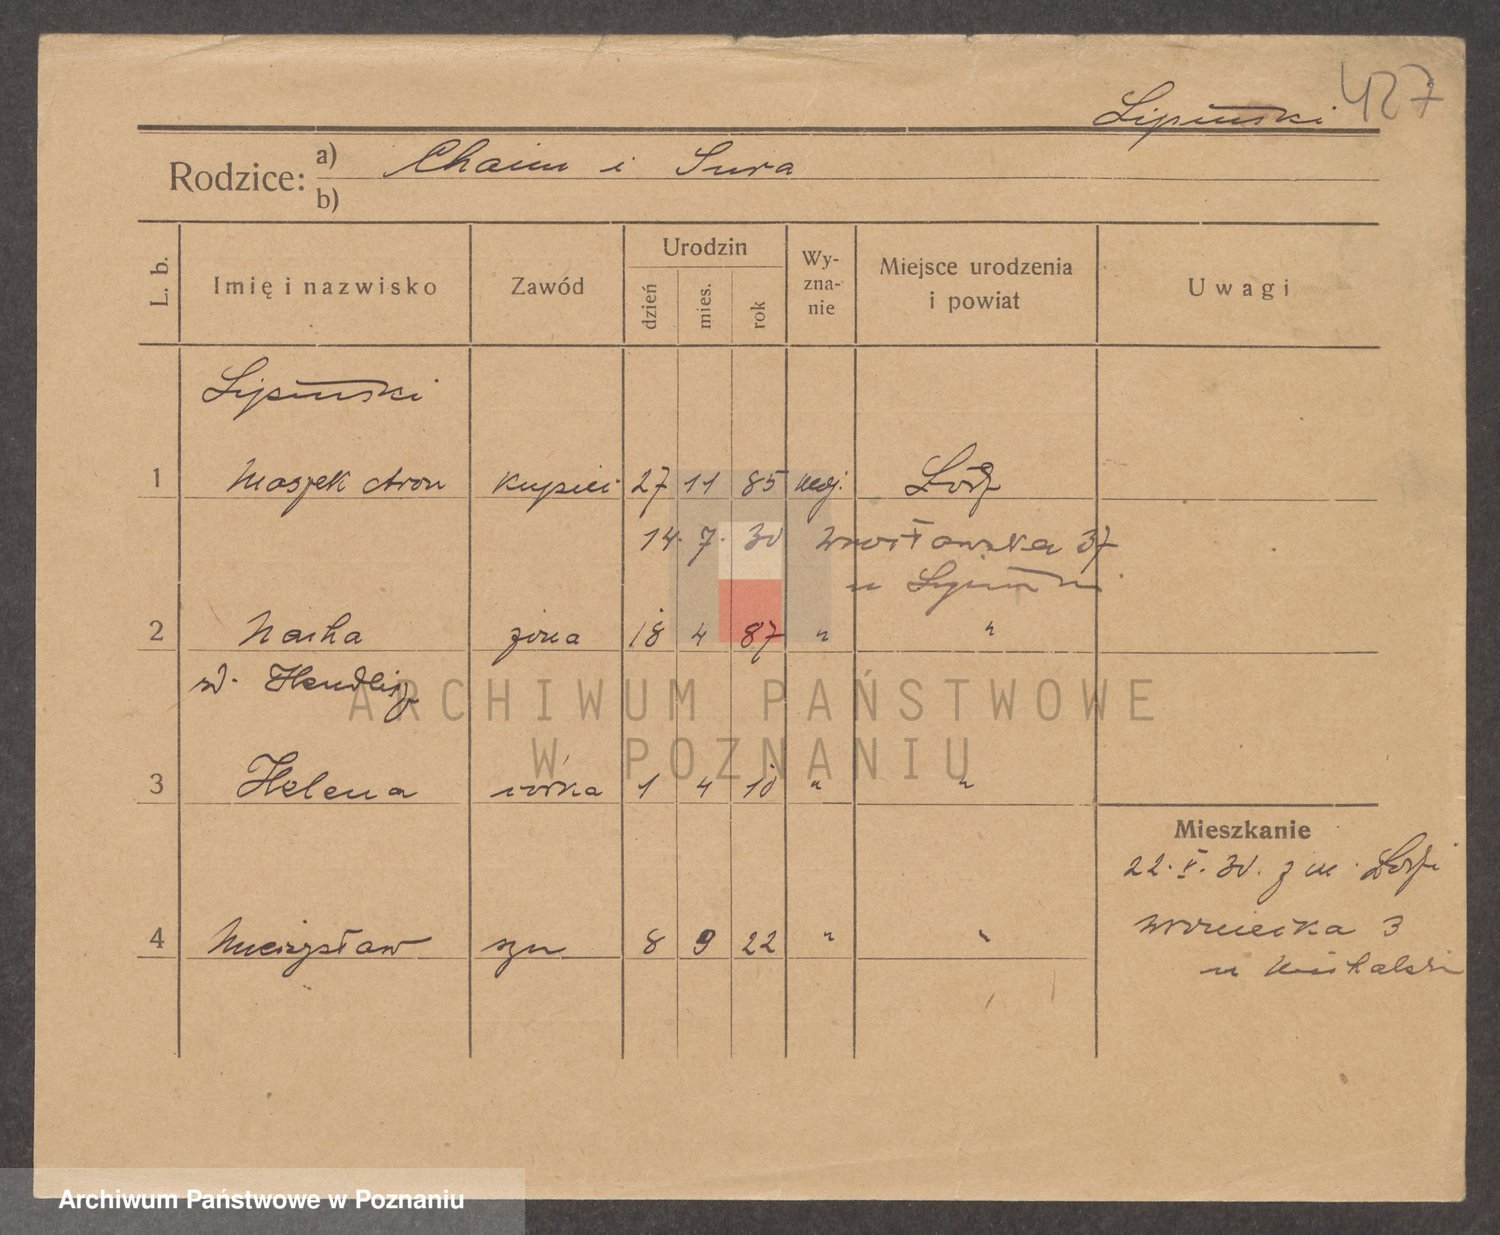 427
Lipiński
Rodzice: a) Chaim i Sura
b)
L. b. Imię i nazwisko Zawód Urodzin dzień mies. rok Wy-zna-nie Miejsce urodzenia i powiat Uwagi
Lipiński
1 Moszek Aron kupiec 27 11 85 mojż. Łódź
14. 7. 30 Wrocławska 37
u Lipiński
2 Nacha żona 18 4 87 " "
z d. Hendlisz
ARCHIWUM PAŃSTWOWE
W POZNANIU
3 Helena córka 1 4 10 " "
Mieszkanie
22. V. 30. z m. Łodzi
4 Mieczysław syn 8 9 22 " "
Woźniecka 3
u Michalski
Archiwum Państwowe w Poznaniu